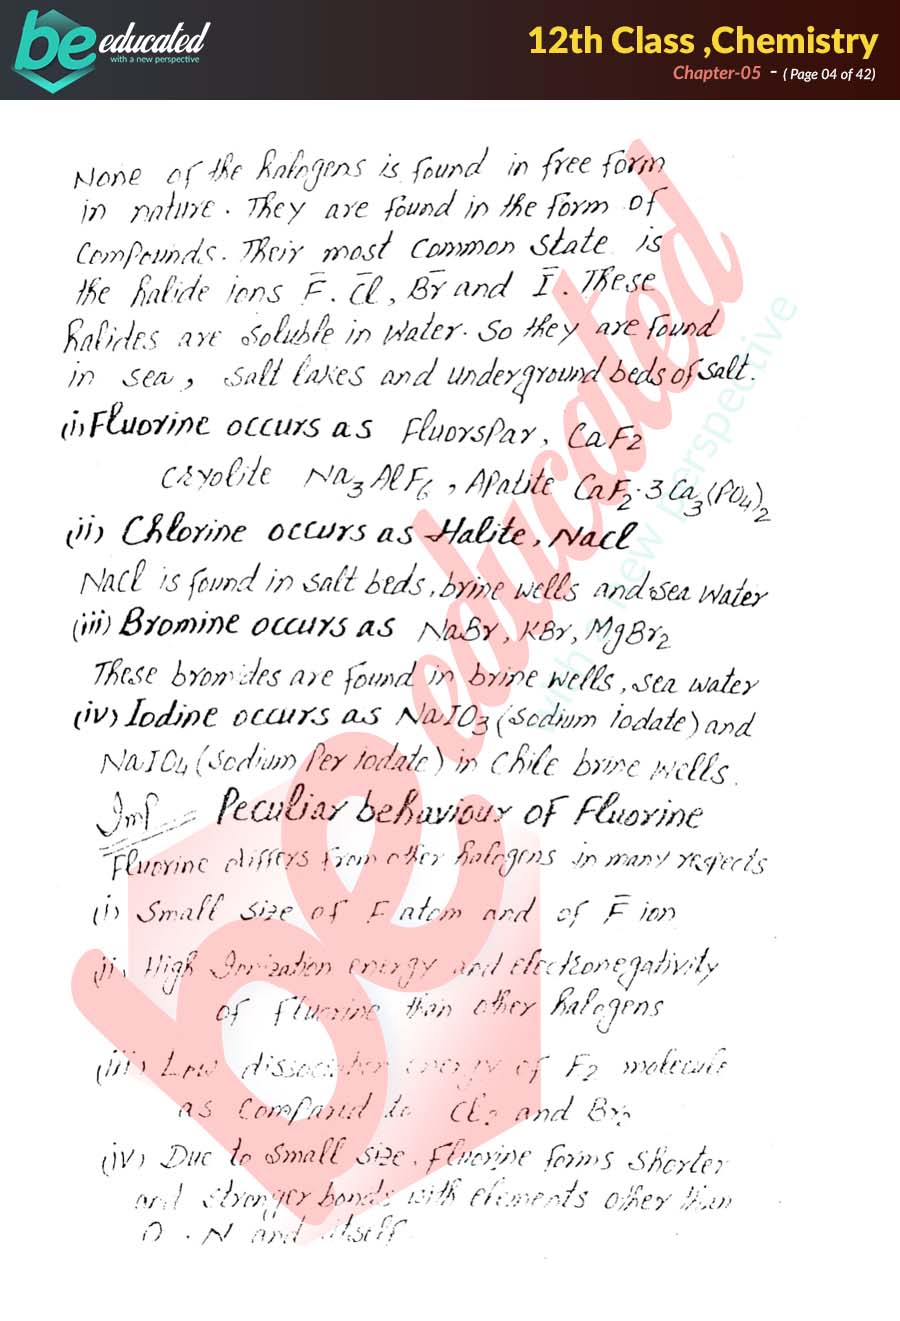 be educated
with a new perspective
12th Class ,Chemistry
Chapter-05 - ( Page 04 of 42)
None of the halogens is found in free form
in nature. They are found in the form of
Compounds. Their most common state is
the halide ions F̄. C̄l, B̄r and Ī. These
halides are soluble in water. So they are found
in sea, salt lakes and underground beds of salt.
(i) Fluorine occurs as Fluorspar, CaF2
Cryolite Na3AlF6, Apatite CaF2.3Ca3(PO4)2
(ii) Chlorine occurs as Halite, Nacl
Nacl is found in salt beds, brine wells and sea water
(iii) Bromine occurs as NaBr, KBr, MgBr2
These bromides are found in brine wells, sea water
(iv) Iodine occurs as NaIO3 (sodium iodate) and
NaIO4 (sodium Per iodate) in Chile brine wells.
Imp Peculiar behaviour of Fluorine
Fluorine differs from other halogens in many respects
(i) Small size of F atom and of F̄ ion
(ii) High Ionization energy and electronegativity
of fluorine than other halogens
(iii) Low dissociation energy of F2 molecule
as Compared to Cl2 and Br2
(iv) Due to small size, Fluorine forms shorter
and stronger bonds with elements other than
O, N and itself.
be educated
with a new perspective